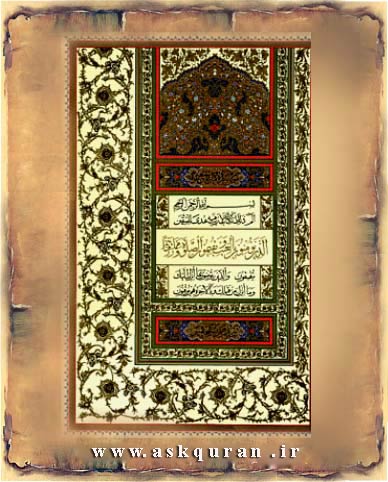 بسم الله الرحمن الرحيم
الم ذلك الكتاب لا ريب فيه هدى للمتقين
الذين يؤمنون بالغيب ويقيمون الصلوة ومما رزقناهم
ينفقون والذين يؤمنون بما أنزل إليك
وما أنزل من قبلك وبالآخرة هم يوقنون
www.askquran.ir